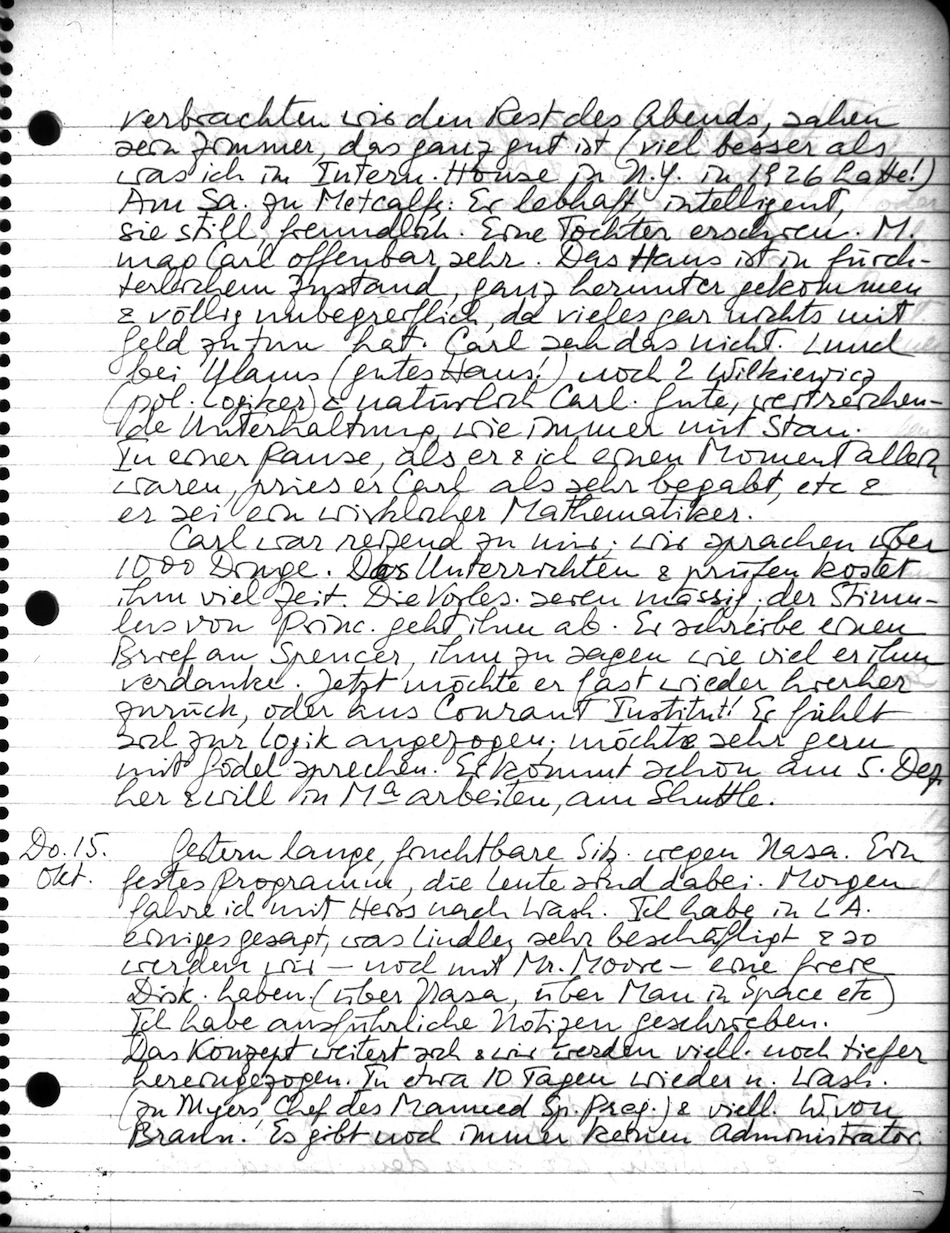 verbrachten wir den Rest des Abends, sahen
sein Zimmer, das ganz gut ist (viel besser als
was ich im Intern. House in N.Y. in 1926 hatte!)
Am Sa. zu Metcalfs: Er lebhaft, intelligent,
sie still, freundlich. Eine Tochter erschien. M.
mag Carl offenbar sehr. Das Haus ist in fürch-
terlichem Zustand, ganz herunter gekommen
& völlig unbegreiflich, da vieles gar nichts mit
Geld zu tun hat. Carl sah das nicht. Lunch
bei Ulams (gutes Haus!) noch 2 Wilkiewicz
(pol. Logiker) & natürlich Carl. Gute, weitreichen-
de Unterhaltung, wie immer mit Stan.
In einer Pause, als er & ich einen Moment allein
waren, pries er Carl als sehr begabt, etc &
er sei ein wirklicher Mathematiker.
Carl war reizend zu mir; wir sprachen über
1000 Dinge. Das Unterrichten & prüfen kostet
ihm viel Zeit. Die Vorles. seien mässig; der Stimu-
lus von Princ. geht ihm ab. Er schreibe einen
Brief an Spencer, ihm zu sagen wie viel er ihm
verdanke. Jetzt möchte er fast wieder hierher
zurück, oder ans Courant Institut! Er fühlt
sich zur Logik angezogen; möchte sehr gern
mit Gödel sprechen. Er kommt schon am 5. Dez
her & will in Ma arbeiten, am Shuttle.
Do. 15.
Okt.
Gestern lange, fruchtbare Sitz. wegen Nasa. Ein
festes Programm, die Leute sind dabei. Morgen
fahre ich mit Heiss nach Wash. Ich habe in L.A.
einiges gesagt, was Lindley sehr beschäftigt & so
werden wir – noch mit Mr. Moore – eine freie
Disk. haben. (über Nasa, über Man in Space etc)
Ich habe ausführliche Notizen geschrieben.
Das Konzept weitert sich & wir werden viell. noch tiefer
hereingezogen. In etwa 10 Tagen wieder n. Wash.
(zu Myers, Chef des Manned Sp. Prog.) & viell. W. von
Braun. Es gibt noch immer keinen Administrator,